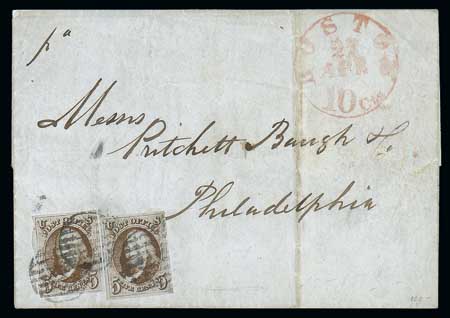 pa
BOSTON
27
APR
10 cts
Messrs
Pritchett Baugh & Co
Philadelphia
POST OFFICE
POST OFFICE
5 FIVE CENTS 5
5 FIVE CENTS 5